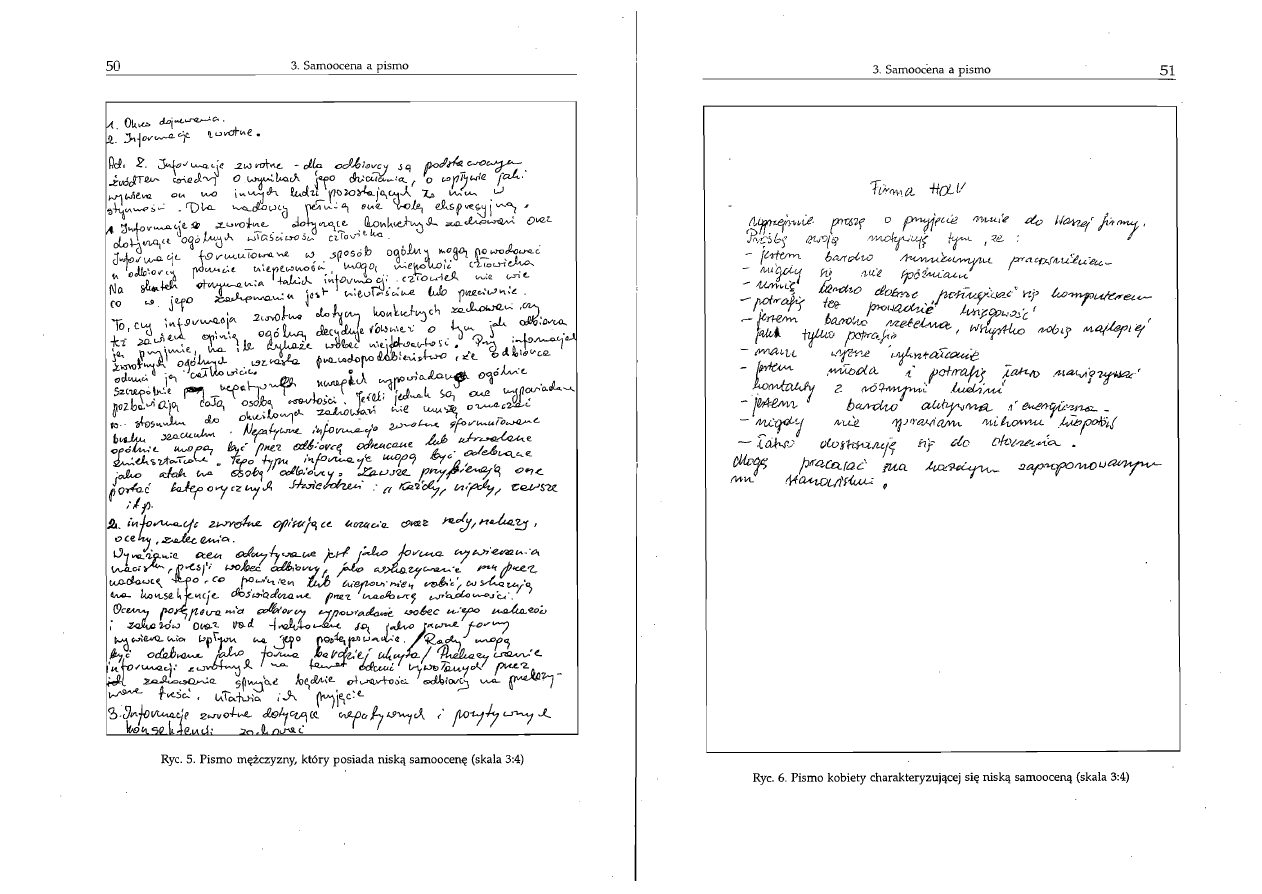 50
3. Samoocena a pismo
1. Okres dojrzewania.
2. Informacje zwrotne.
Ad. 2. Informacje zwrotne - dla odbiorcy są podstawowym
źródłem wiedzy o wynikach jego działania, o wpływie jaki
wywiera on na innych ludzi pozostających z nim w
styczności. Dla nadawcy pełnią one rolę ekspresyjną.
1 Informacje zwrotne dotyczące konkretnych zachowań oraz
dotyczące ogólnych właściwości człowieka.
Informacje formułowane w sposób ogólny mogą powodować
u odbiorcy poczucie niepewności, mogą niepokoić człowieka
Na skutek otrzymania takich informacji człowiek nie wie
co w jego zachowaniu jest niewłaściwe lub przeciwnie.
To, czy informacja zwrotna dotyczy konkretnych zachowań, czy
też zawiera opinię ogólną decyduje również o tym jak odbiorca
ją przyjmie, na ile wykaże wobec niej otwartość. Przy informacjach
zwrotnych ogólnych wzrasta prawdopodobieństwo, że odbiorca
odrzuci ją całkowicie.
Szczególnie negatywnych ogólnie
pozbawiają całą osobę wartości. Jeżeli jednak są one wypowiadane
w stosunku do określonych zachowań nie muszą oznaczać
braku szacunku. Negatywne informacje zwrotne sformułowane
ogólnie mogą być przez odbiorcę odrzucane lub utrwalane
zniekształcone. Tego typu informacje mogą być odebrane
jako atak na osobę odbiorcy. Zawsze przybierają one
postać kategorycznych stwierdzeń: „Każdy, nigdy, zawsze
itp.
2. informacje zwrotne opisujące uczucia oraz rady, nakazy,
oceny, zalecenia.
Wyrażanie ocen odczytywane jest jako forma wywierania
nacisku, presji wobec odbiorcy, jako wskazywanie mu przez
nadawcę tego, co powinien lub niepowinien robić, wskazują
na konsekfencje doświadczane przez nadawcę wiadomości.
Oceny postępowania odbiorcy wypowiadane wobec niego nakazów
i zakazów oraz rad traktowane są jako jawne formy
wywierania wpływu na jego postępowanie. / Rady mogą
być odebrane jako forma bardziej ukryta / Przekazywanie
informacji zwrotnych na temat odczuć wywołanych przez
ich zachowanie sprzyjać będzie otwartości odbiorcy na przekazy-
wane treści, ułatwia ich przyjęcie
3. Informacje zwrotne dotyczące negatywnych i pozytywnych
konsekfencji zachowań
Ryc. 5. Pismo mężczyzny, który posiada niską samoocenę (skala 3:4)
3. Samoocena a pismo
51
Firma HOLV
Uprzejmie proszę o przyjęcie mnie do Waszej firmy.
Prośbę swoją motywuję tym, że:
- jestem bardzo sumiennym pracownikiem
- nigdy się nie spóźniam
- umię bardzo dobrze posługiwać się komputerem
- potrafię też prowadzić księgowość
- jestem bardzo rzetelna, wszystko robię najlepiej
jak tylko potrafię
- mam wyższe wykształcenie
- jestem młoda i potrafię łatwo nawiązywać
kontakty z różnymi ludźmi
- jestem bardzo aktywna i energiczna -
- nigdy nie sprawiam nikomu kłopotów
- łatwo dostosuję się do otoczenia.
Mogę pracować na każdym zaproponowanym
mi stanowisku.
Ryc. 6. Pismo kobiety charakteryzującej się niską samooceną (skala 3:4)